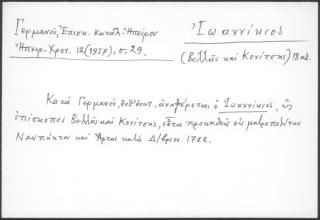 Γερμανοῦ, Ἐπισκ. Κατάλ. Ἠπείρου
Ἠπειρ. Χρον. 12 (1937), σ. 29.
Ἰωαννίκιος
(Βελλᾶς καὶ Κονίτσης) 18 αἰ.
Κατὰ Γερμανόν, ἀναφέρεται ὁ Ἰωαννίκιος, ὡς
ἐπίσκοπος Βελλᾶς καὶ Κονίτσης, εἶτα προαχθεὶς εἰς μητροπολίτην
Ναυπάκτου καὶ Ἄρτης κατὰ Δ/βριον 1722.